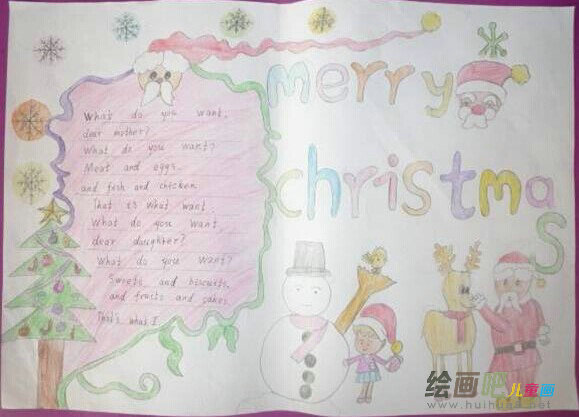 merry
christmas
What do you want,
dear mother?
What do you want?
Meat and eggs.
and fish and chicken.
That is what want.
What do you want
dear daughter?
What do you want?
Sweets and biscuits.
and fruits and cakes.
That's what I
绘画吧儿童画
www.huihua8.net